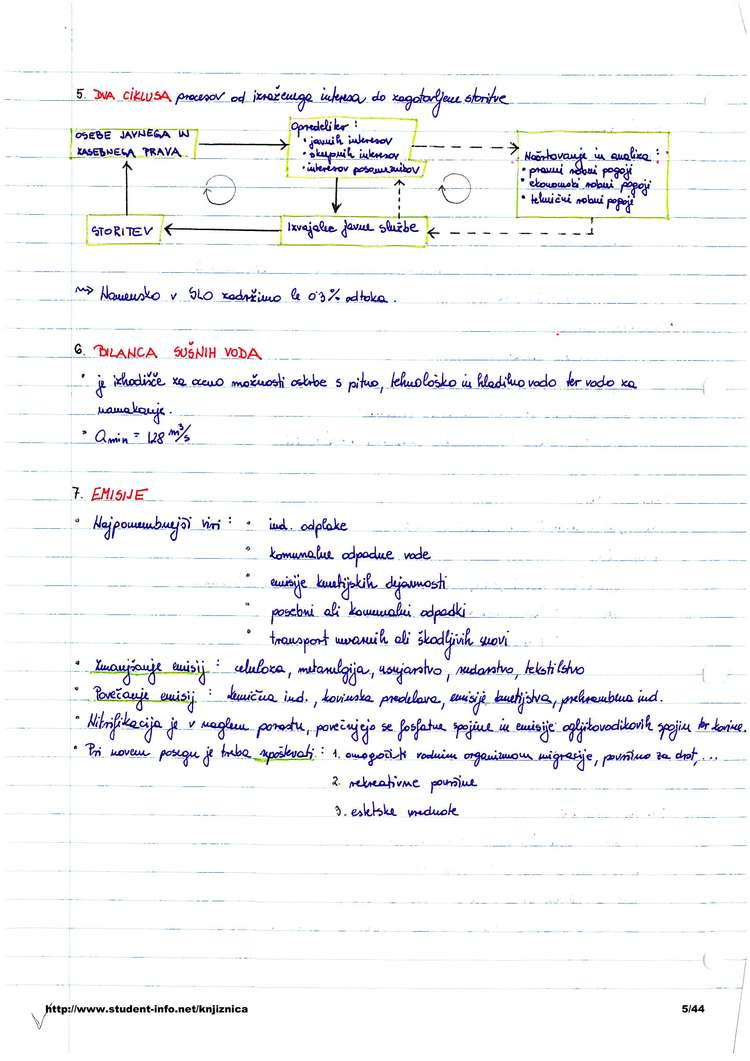 5. DVA CIKLUSA procesov od izraženega interesa do zagotovljene storitve
OSEBE JAVNEGA IN
ZASEBNEGA PRAVA
Opredelitev :
• javnih interesov
• skupnih interesov
• interesov posameznikov
Načrtovanje in analiza :
• pravni robni pogoji
• ekonomski robni pogoji
• tehnični robni pogoji
STORITEV
Izvajalec javne službe
⇝ Namensko v SLO zadržimo le 0'3 % odtoka.
6. BILANCA SUŠNIH VODA
• je izhodišče za oceno možnosti oskrbe s pitno, tehnološko in hladilno vodo ter vodo za
namakanje.
• Qmin = 128 m³/s
7. EMISIJE
• Najpomembnejši viri : • ind. odplake
• komunalne odpadne vode
• emisije kmetijskih dejavnosti
• posebni ali komunalni odpadki
• transport nevarnih ali škodljivih snovi
• Zmanjšanje emisij : celuloza, metarulgija, usnjarstvo, rudarstvo, tekstilstvo
• Povečanje emisij : kemična ind., kovinska predelava, emisije kmetijstva, prehrambena ind.
• Nitrifikacija je v naglem porastu, povečujejo se fosfatne spojine in emisije ogljikovodikovih spojin ter kovine.
• Pri novem posegu je treba upoštevati : 1. omogočiti vodnim organizmom migracije, površino za drst, ...
2. rekreativne površine
3. estetske vrednote
http://www.student-info.net/knjiznica
5/44